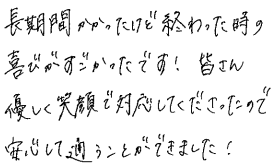 長期間かかったけど終わった時の
喜びがすごかったです! 皆さん
優しく笑顔で対応してくださったので
安心して通うことができました!